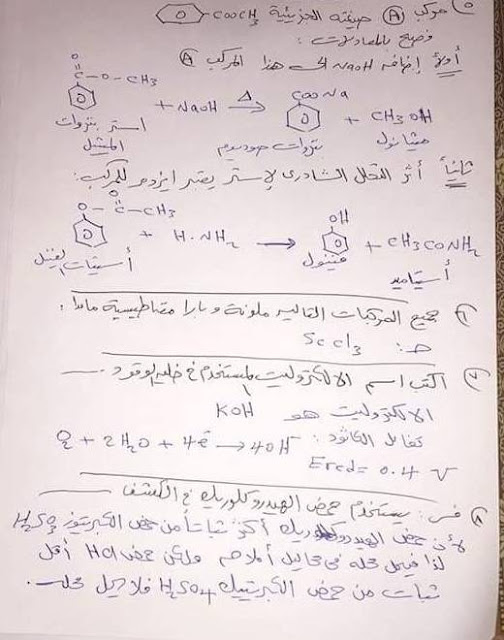 مركب (A) صيغته الجزيئية COOCH3
وضح بالمعادلات :
أولاً إضافة NaOH الى هذا المركب A
C - O - CH3
O
+ NaOH Δ → COONa + CH3OH
استر بنزوات الميثيل بنزوات صوديوم ميثانول
ثانياً أثر التحلل النشادرى لإستر يعتبر ايزومر للمركب :
O
O C - CH3
+ H.NH2 → OH + CH3CONH2
أسيتات فينيل فينول أسيتاميد
جميع المركبات التالية ملونة وبارا مغناطيسية ماعدا .
حـ : ScCl3
اكتب اسم الالكتروليت المستخدم فى خلية الوقود
الالكتروليت هو KOH
تفاعل الكاثود :
O2 + 2H2O + 4e- → 4OH-
Ered = 0.4 V
٨ فسر : يستخدم حمض الهيدروكلوريك فى الكشف
لأن حمض الهيدروكلوريك أكثر ثباتاً من حمض الكبريتوز H2SO3
لذا فيحل محله فى محاليل أملاحه ولكن حمض HCl أقل
ثبات من حمض الكبريتيك H2SO4 فلا يحل محله .